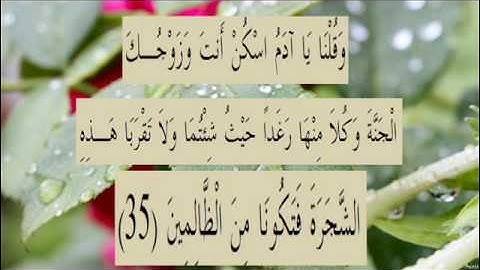 وَقُلْنَا يَا آدَمُ اسْكُنْ أَنتَ وَزَوْجُــكَ
الْجَنَّةَ وَكُلاَ مِنْهَا رَغَداً حَيْثُ شِئْتُمَا وَلاَ تَقْرَبَا هَـــذِهِ
الشَّجَرَةَ فَتَكُونَا مِنَ الْظَّالِمِينَ (35)